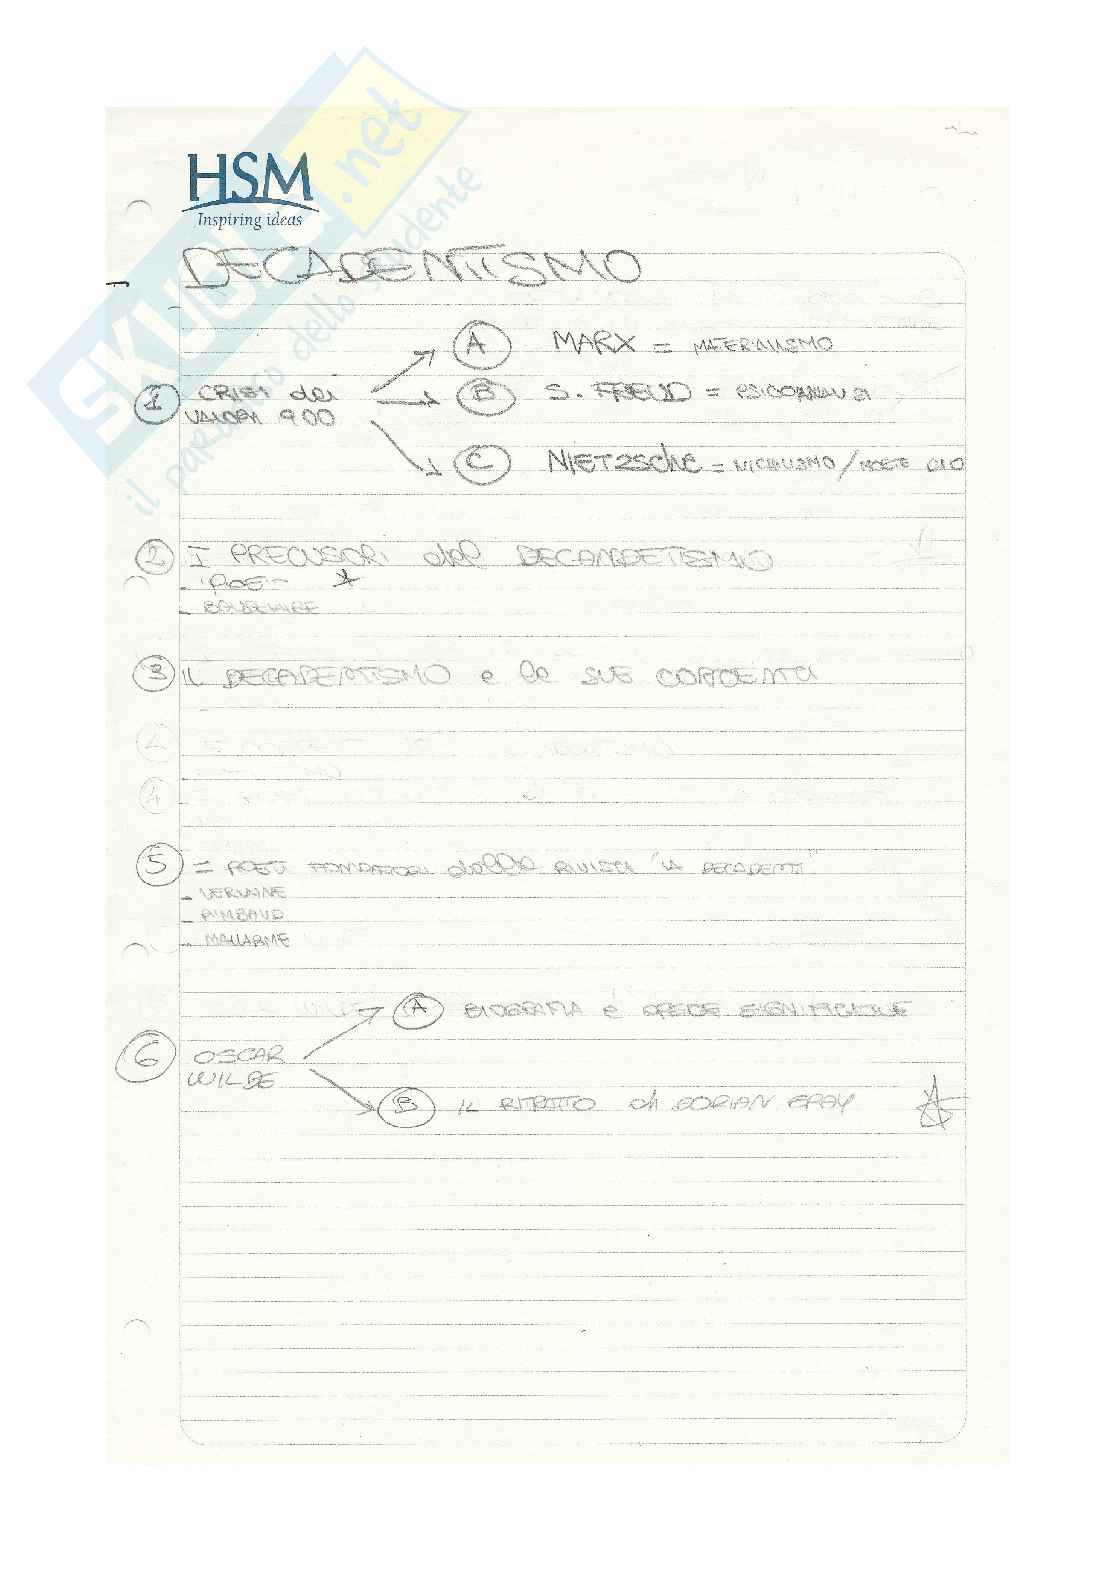 SKUOLA.net
il paradiso dello studente
HSM
Inspiring ideas
DECADENTISMO
A MARX = MATERIALISMO
1 CRISI dei B S. FREUD = PSICOANALISI
VALORI 900
C NIETZSChE = NICHILISMO / MORTE DIO
2 I PRECUSORI del DECANDETISMO
- POE
- BAUDELAIRE
3 IL DECADENTISMO e le SUE CORRENTI
4
5 = POETI FONDATORI della RIVISTA "LA DECADENTI"
- VERLAINE
- RIMBAUD
- MALLARME
A BIOGRAFIA e OPERE SIGNIFICATIVE
6 OSCAR
WILDE
B IL RITRATTO di DORIAN GRAY